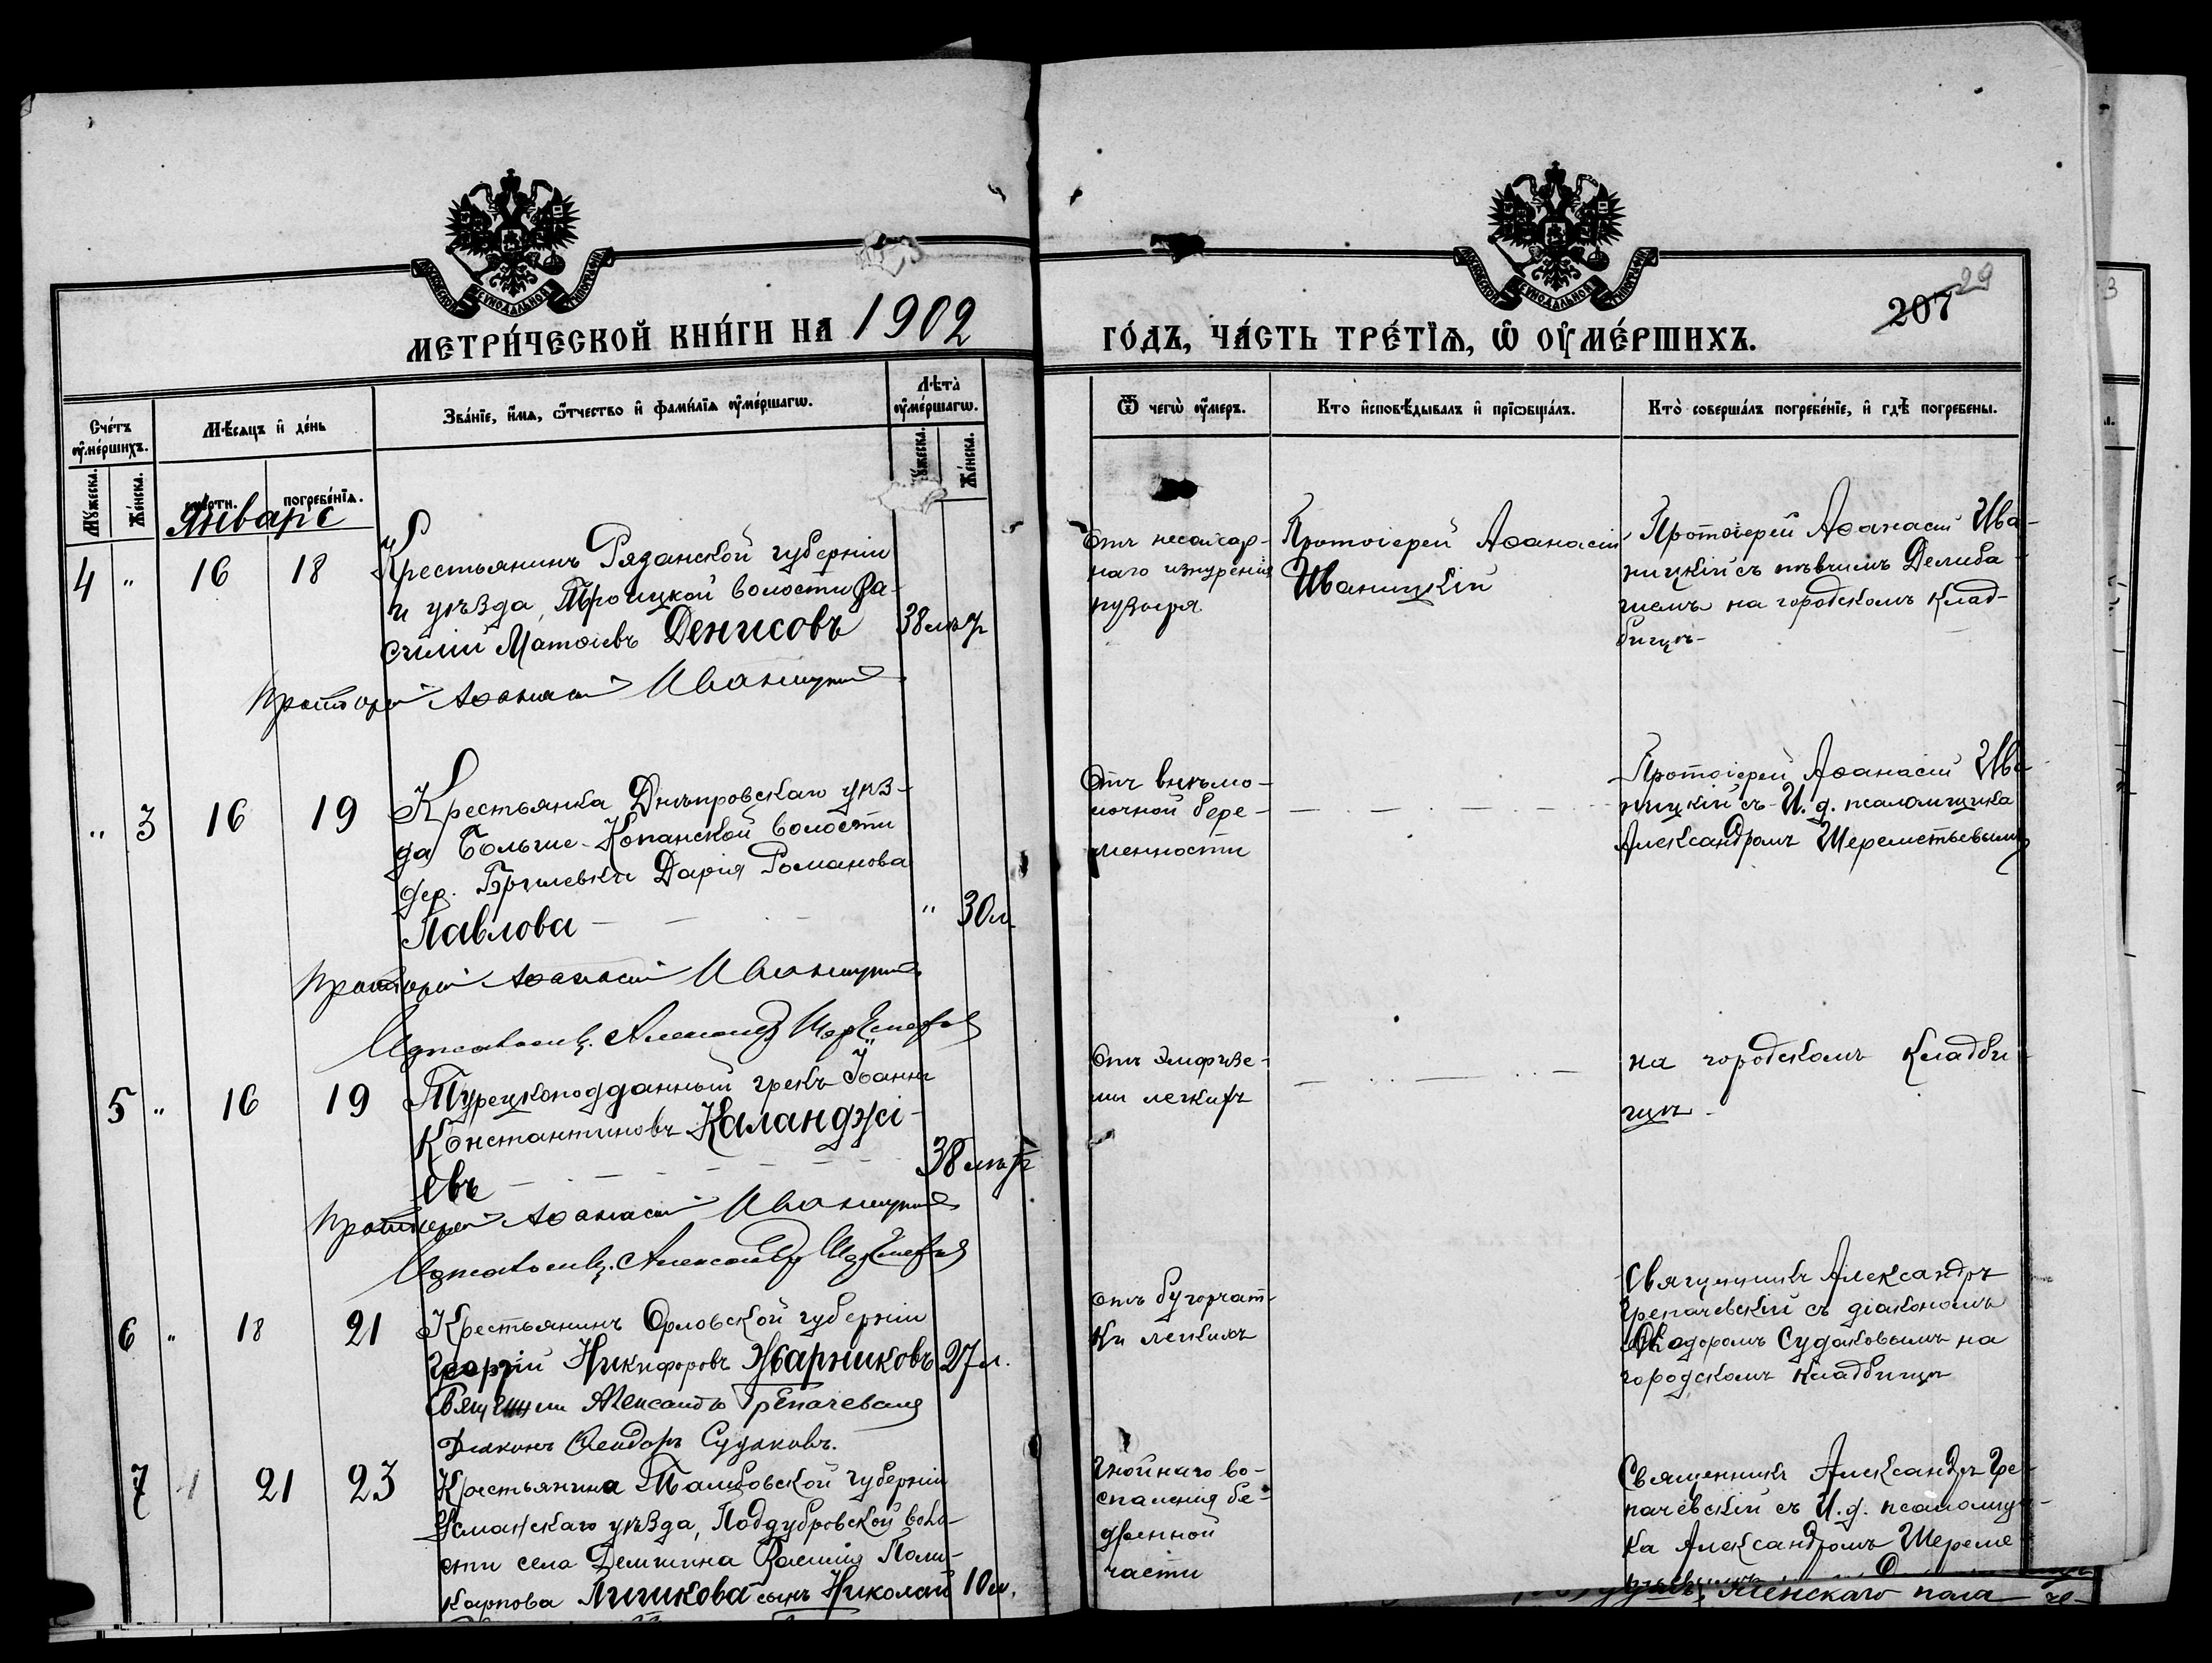 МЕТРИ́ЧЕСКОЙ КНИ́ГИ НА 1902
ГО́ДЪ, ЧА́СТЬ ТРЕ́ТІѦ, Ѡ҆ ОУ҆МЕ́РШИХЪ.
207
29
Сче́тъ
оу҆ме́ршихъ.
Му́жеска.
Же́нска.
Мѣ́сяцъ и҆ де́нь
сме́рти.
погребе́нїѧ.
Январь
Зва́нїе, и҆́мѧ, ѻ҆́тчество и҆ фами́лїѧ оу҆ме́ршагѡ.
Лѣта̀
оу҆ме́ршагѡ.
Му́жеска.
Же́нска.
Ѿ чегѡ̀ оу҆́меръ.
Кто̀ и҆сповѣ́дывалъ и҆ прїѡбща́лъ.
Кто̀ соверша́лъ погребе́нїе, и҆ гдѣ̀ погребены.
4 " 16 18
Крестьянинъ Рязанской губерніи
и уѣзда, Троицкой волости Ва-
силій Матѳіевъ Денисовъ
38 лѣтъ
Протоіерей Аѳанасій Иваницкій
Отъ
наго изнуренія
пузыря
Протоіерей Аѳанасій
Иваницкій
Протоіерей Аѳанасій Ива-
ницкій съ пѣвчимъ Делиба-
на городскомъ клад-
бищѣ
" 3 16 19
Крестьянка Днѣпровскаго уѣз-
да Больше-Копанской волости
дер. Бриневки Дарія Романова
Павлова
" 30 л.
Протоіерей Аѳанасій Иваницкій
Александръ Шереметьевъ
Отъ внѣма-
точной бере-
менности
Протоіерей Аѳанасій Ива-
ницкій съ И. д. псаломщика
Александромъ Шереметьевымъ
5 " 16 19
Турецкоподданный грекъ Іоаннъ
Константиновъ Каланджі-
евъ
38 лѣтъ
Протоіерей Аѳанасій Иваницкій
Александръ Шереметьевъ
Отъ эмфизе-
мы легкихъ
на городскомъ кладби-
щѣ
6 " 18 21
Крестьянинъ Орловской губерніи
Георгій Никифоровъ Жварниковъ
27 л.
Священникъ Александръ Грепачевскій
Діаконъ Ѳеодоръ Судаковъ.
Отъ бугорчат-
ки легкихъ
Священникъ Александръ
Грепачевскій съ діакономъ
Ѳеодоромъ Судаковымъ на
городскомъ кладбищѣ
7 " 21 23
Крестьянина Тамбовской губерніи
Усманскаго уѣзда, Поддубровской воло-
сти села Демшина Василія Поли-
карпова сынъ Николай
10 л.
Гнойнаго во-
спаленія бе-
дренной
части
Священникъ Александръ Гре-
пачевскій съ И. д. псаломщи-
ка Александромъ Шереме-